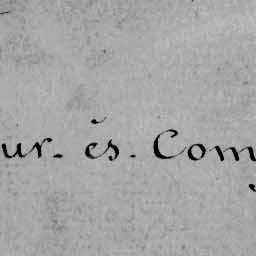 ur. és. Com